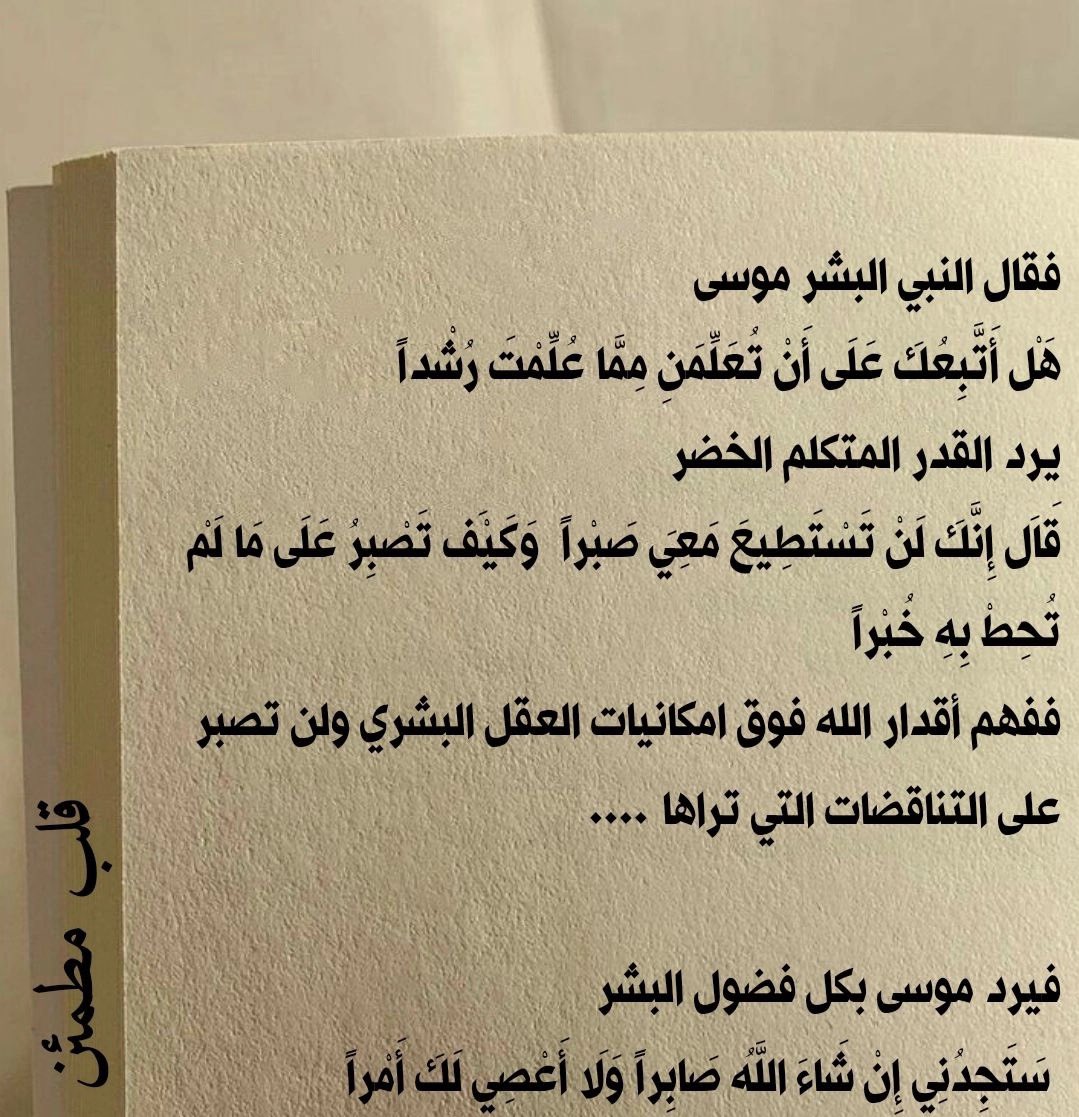 فقال النبي البشر موسى
هَلْ أَتَّبِعُكَ عَلَى أَنْ تُعَلِّمَنِ مِمَّا عُلِّمْتَ رُشْداً
يرد القدر المتكلم الخضر
قَالَ إِنَّكَ لَنْ تَسْتَطِيعَ مَعِيَ صَبْراً وَكَيْفَ تَصْبِرُ عَلَى مَا لَمْ
تُحِطْ بِهِ خُبْراً
ففهم أقدار الله فوق امكانيات العقل البشري ولن تصبر
على التناقضات التي تراها ....
فيرد موسى بكل فضول البشر
سَتَجِدُنِي إِنْ شَاءَ اللَّهُ صَابِراً وَلَا أَعْصِي لَكَ أَمْراً
قلب مطمئن